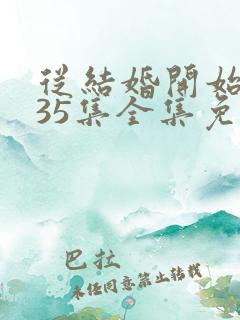 從結婚開始
35集全集免
巴拉
未經同意禁止轉載